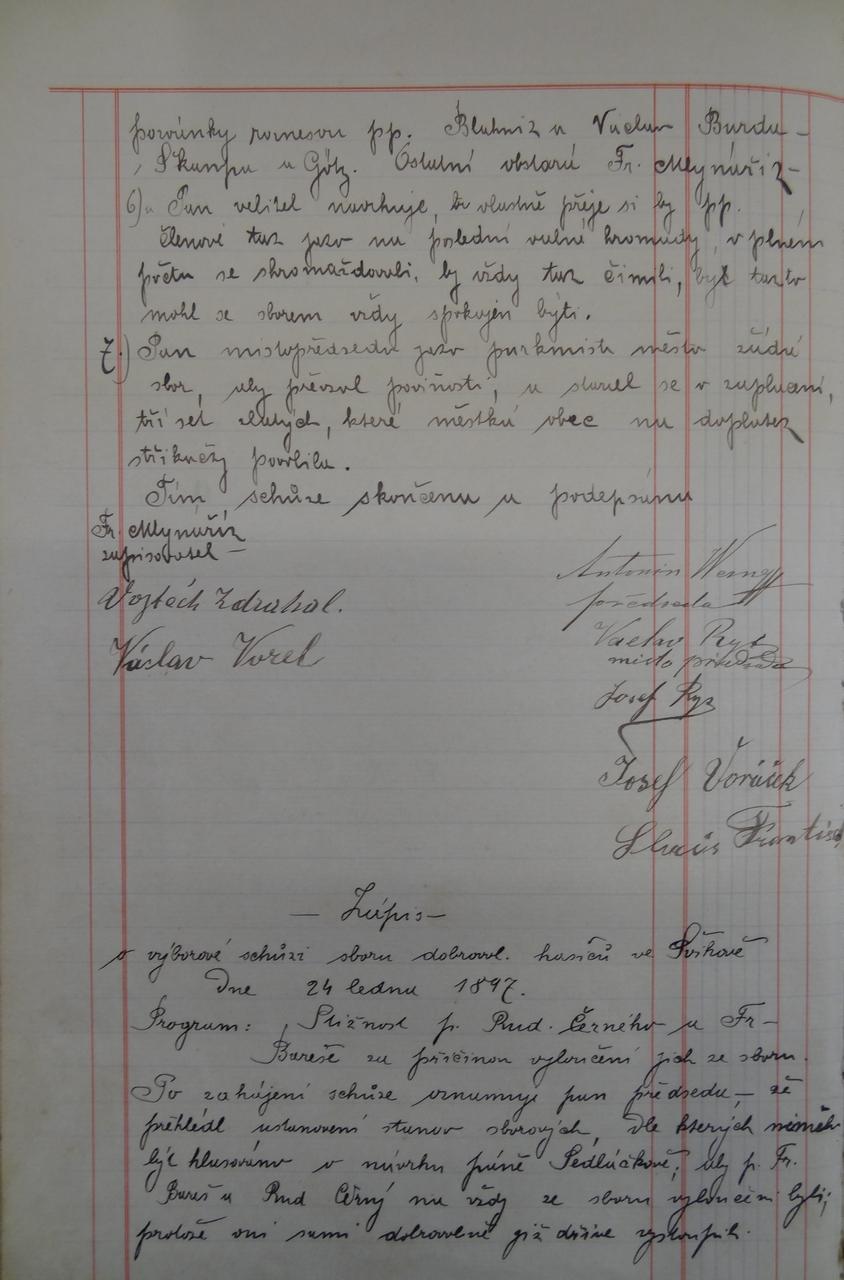 pozvánky roznesou pp. Blahník a Václav Burda –
Škampa a Götz. Ostatní obstará Fr. Mlynářík –
6) Pan velitel navrhuje, že vlastně přeje si by pp.
členové tak jako na poslední valné hromadě, v plném
počtu se shromažďovali, by vždy tak činili, by takto
mohl se sborem vždy spokojen býti.
7.) Pan místopředseda jako purkmistr města žádá
sbor, aby převzal povinosti, a staral se o zaplacení,
tří set zlatých, které městká obec na doplatek
stříkačky povolila.
Tím schůze skončena a podepsána
Fr. Mlynářík
zapisovatel –
Antonín
předseda
Vojtěch Zdrahal.
Václav Rys
místo předseda
Václav Vorel
Josef Rys
Josef Voráček
František
— Zápis —
o výborové schůzi sboru dobrovol. hasičů ve
Dne 24 ledna 1897.
Program: Stížnost p. Rud. Černého a Fr –
Bareše za příčinou vyloučení jich ze sboru.
Po zahájení schůze oznamuje pan předseda, – že
přehlédl ustanovení stanov sborových, dle kterých nemělo
být hlasováno o návrhu páně Sedláčkově, aby p. Fr.
Bareš a Rud Černý na vždy ze sboru vyloučeni byli,
protože oni sami dobrovolně již dříve vystoupili.